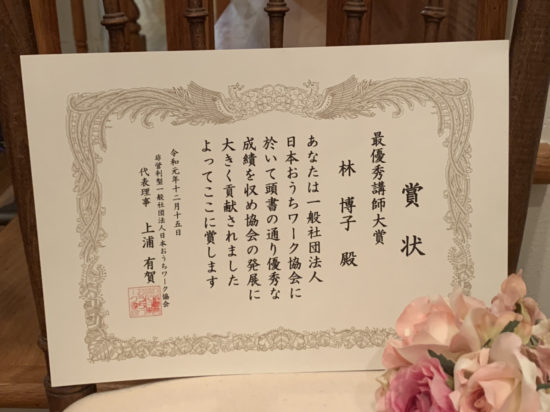 賞状
最優秀講師大賞
林 博子 殿
あなたは一般社団法人
日本おうちワーク協会に
於いて頭書の通り優秀な
成績を収め協会の発展に
大きく貢献されました
よってここに賞します
令和元年十二月十五日
非営利型一般社団法人日本おうちワーク協会
代表理事 上浦 有賀